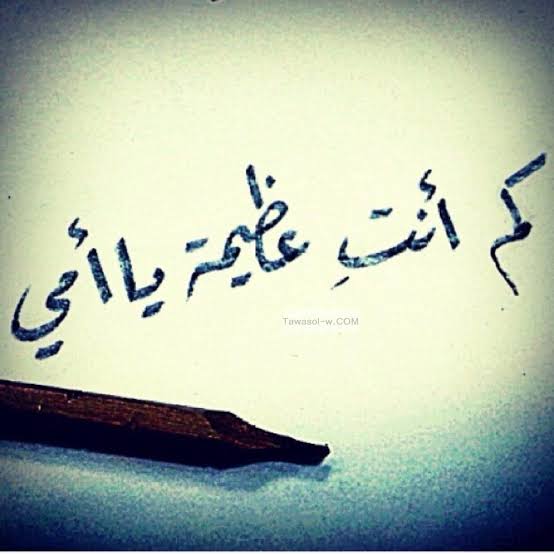 كم أنتِ عظيمة يا أمي
Tawasol-w.COM